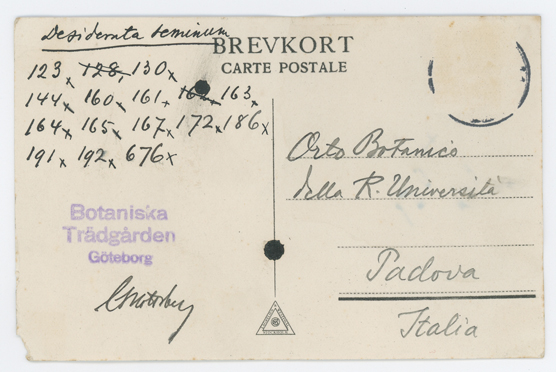 Desiderata seminum
BREVKORT
CARTE POSTALE
123x 128, 130x
144x 160x 161x 162x 163x
164x 165x 167x 172x 186x
191x 192x 676x
Orto Botanico
della R. Università
Padova
Italia
Botaniska
Trädgården
Göteborg